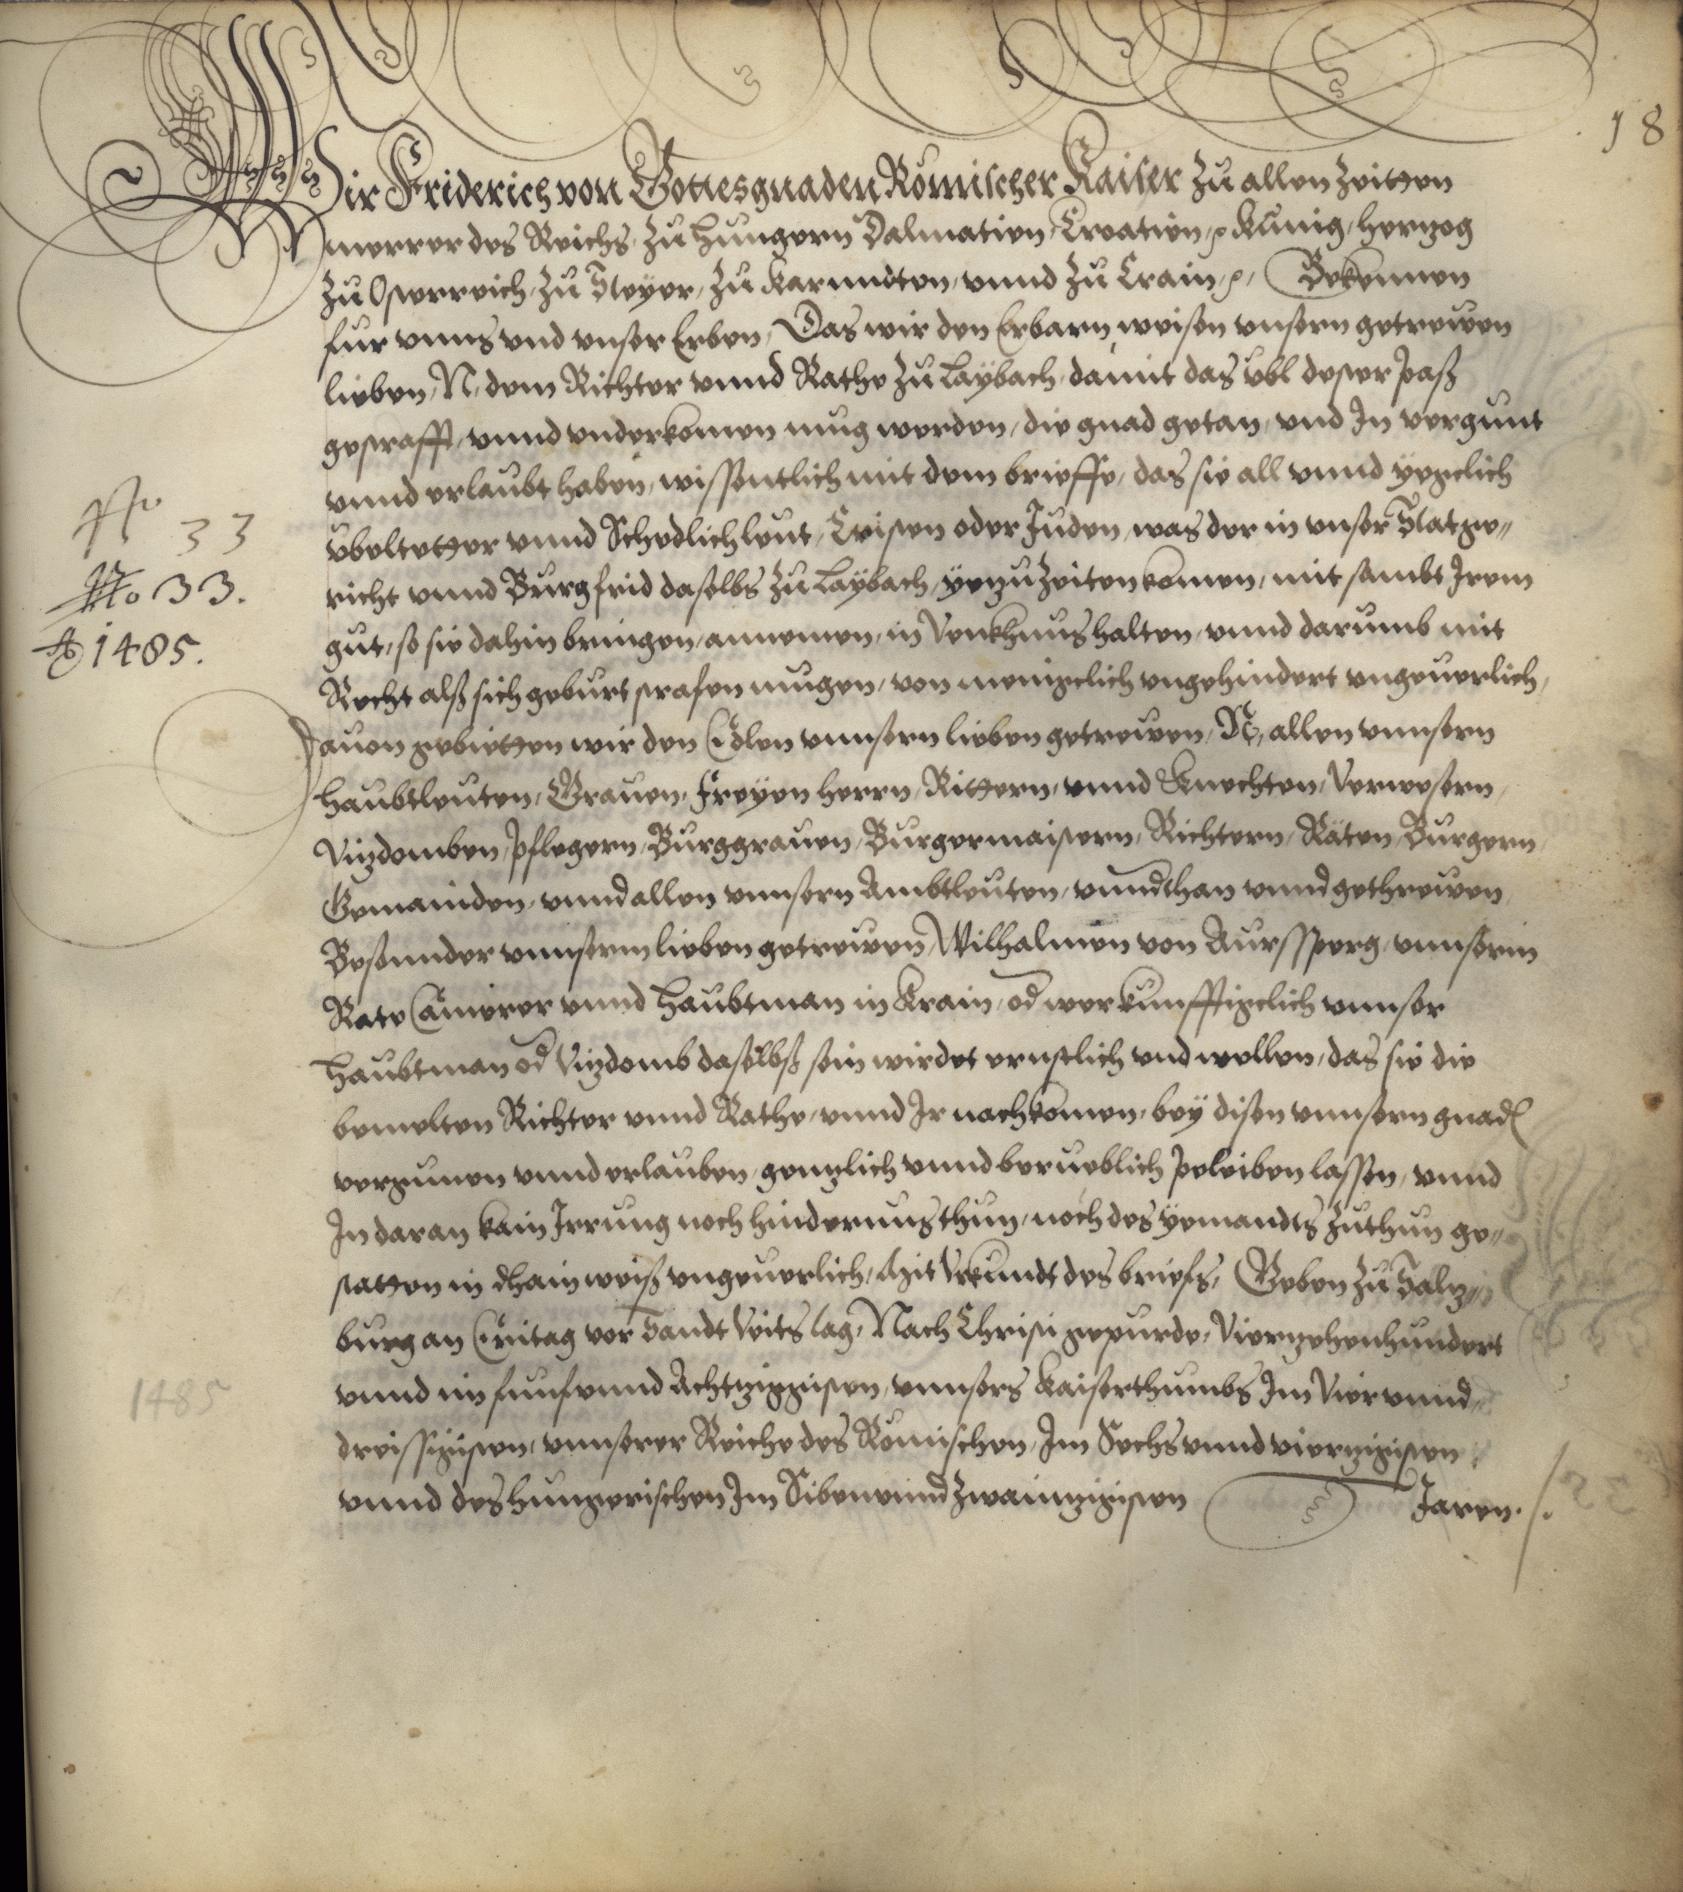 18
Wir Friderich von Gottes gnaden Römischer Kaiser zu allen Zeitten
merrer des Reichs, zu Hungern Dalmatien, Croatien, ꝛ Künig, Hertzog
zu Osterreich, zu Steyer, zu Karnndten, vnnd zu Crain, ꝛ, Bekennen
fur vnns vnd vnser Erben, Das wir den Erbarn, weisen vnsern getrewen
lieben, N, dem Richter vnnd Rathe zu Laÿbach, damit das übl dester paß
gestrafft, vnnd vnderkomen mug werden, die gnad getan, vnd In vergunt
vnnd erlaubt haben, wissentlich mit dem brieffe, das sie all vnnd yegclich
übeltetter vnnd Schedlich leut, Cristen oder Juden, was der in vnser Statge„
richt vnnd Burgfrid daselbs zu Laÿbach, ÿe zu Zeiten komen, mit sambt Irem
gut, so sie dahin bringen, annemen, in Venkhnus halten, vnnd darumb mit
Recht alß sich geburt strafen mugen, von menigclich vngehindert vngeuerlich,
Dauon gebietten wir den Edlen vnnsern lieben getrewen, N, allen vnnsern
Haubtleuten, Grauen, Freÿen Herrn, Rittern, vnnd Knechten, Verwesern,
Vitzdomben, Pflegern, Burggrauen, Burgermaistern, Richtern, Räten, Burgern,
Gemainden, vnnd allen vnnsern Ambtleuten, vnndthan vnnd gethrewen,
Besonnder vnnserm lieben getrewen, Wilhalmen von Aurssperg, vnnserm
Rate Camerer vnnd Haubtman in Krain, od wer kunfftigclich vnnser
Haubtman od Vitzdomb daselbß sein wirdet ernstlich vnd wellen, das sie die
bemelten Richter vnnd Rathe, vnnd Ir nachkomen, beÿ disen vnnsern gnadn
vergunen vnnd erlauben, genntzlich vnnd berueblich peleiben lassen, vnnd
In daran kain Irrung noch hindernus thun, noch des ÿemandts zuthun ge„
statten in dhain weiß vngeuerlich, Mit Vrkundt des briefs, Geben zu Saltz„
burg an Eritag vor Sandt Veits tag, Nach Christi gepurde, Viertzehenhundert
vnnd im funf vnnd Achtzigisten, vnnsers Kaiserthumbs Im Vier vnnd„
dreissigisten, vnnserer Reiche des Römischen, Im Sechs vnnd viertzigisten
vnnd des hungerischen Im Siben vnnd Zwaintzigisten Jaren.
No 33
No 33.
Ao 1485.
1485